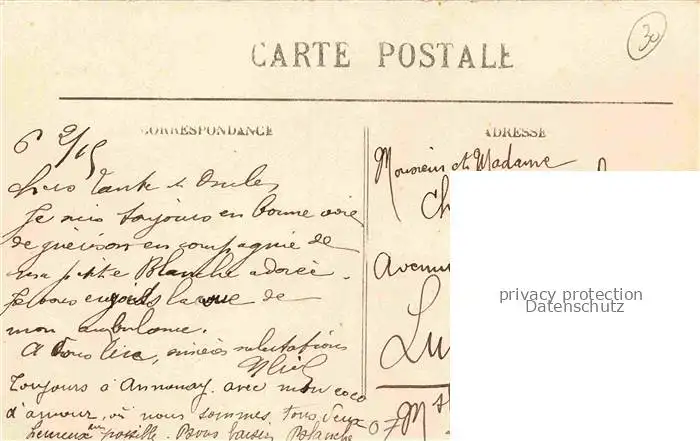 30
CARTE POSTALE
CORRESPONDANCE
ADRESSE
6 2/15
Chers Tante & Oncle,
Je suis toujours en bonne voie
de guérison en compagnie de
ma p'tite Blanche adorée.
Je vous envois la vue de
mon ambulance.
A tous deux, sincères salutations
Toujours à Annonay avec mon coco
d'amour, où nous sommes tous deux
heureux que possible. Bons baisers Blanche
Monsieur et Madame
Ch
Avenue
Lu
07 M
privacy protection
Datenschutz